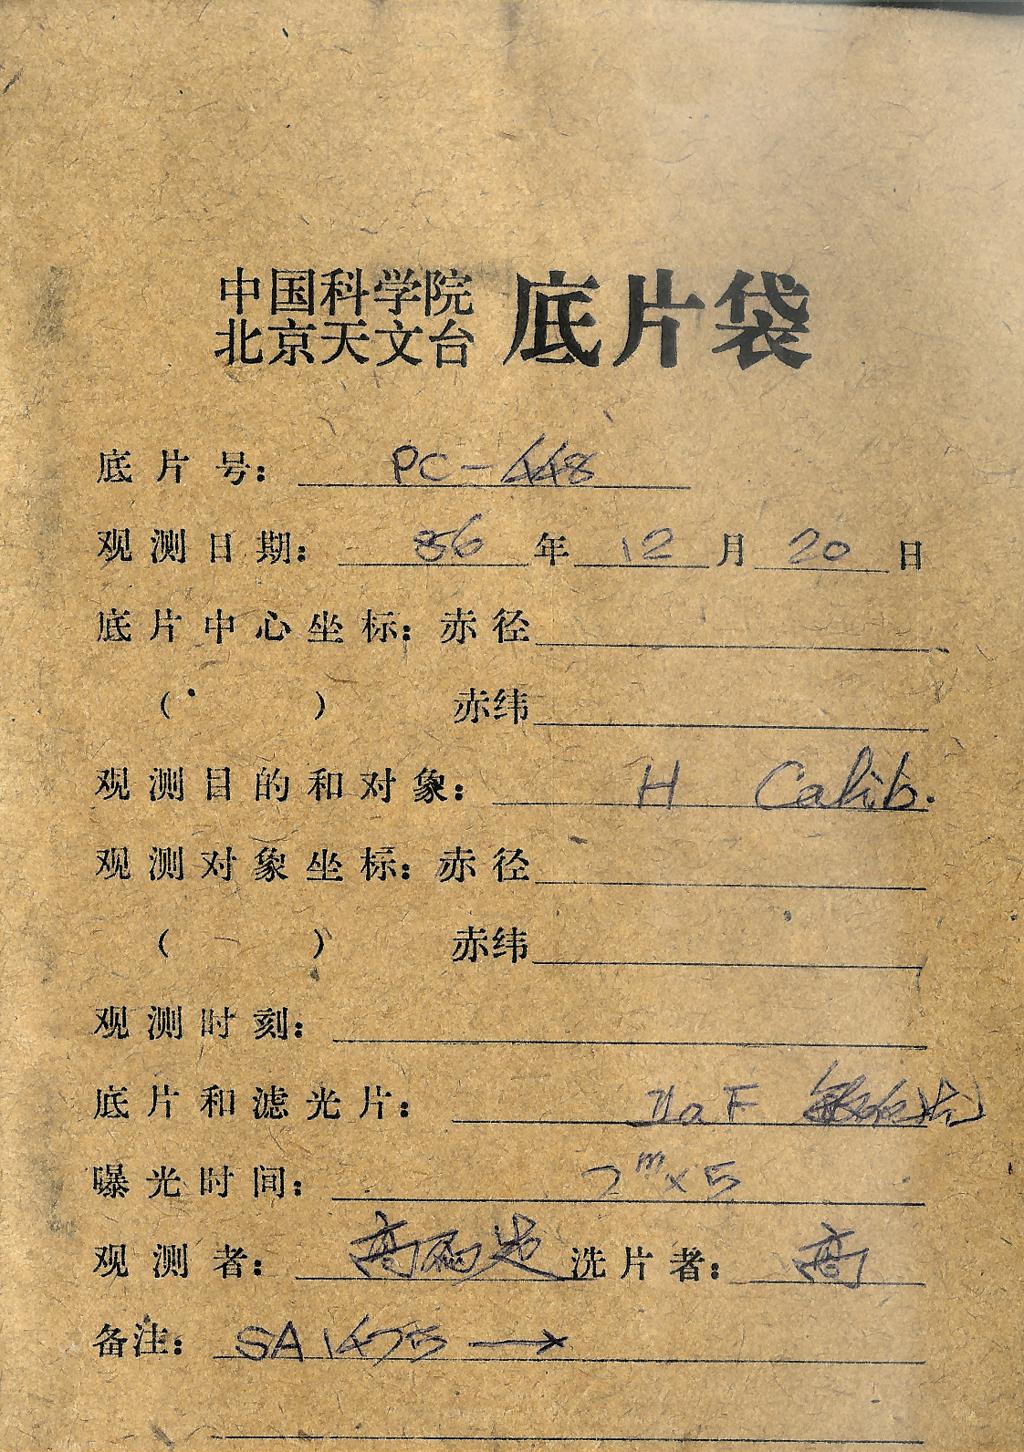 中国科学院
北京天文台 底片袋
底片号: PC-448
观测日期: 86年12月20日
底片中心坐标: 赤径
( ) 赤纬
观测目的和对象: H Calib.
观测对象坐标: 赤径
( ) 赤纬
观测时刻:
底片和滤光片: IIaF
曝光时间: 2ᵐ×5
观测者: 高 洗片者: 高
备注: SA 1475 →